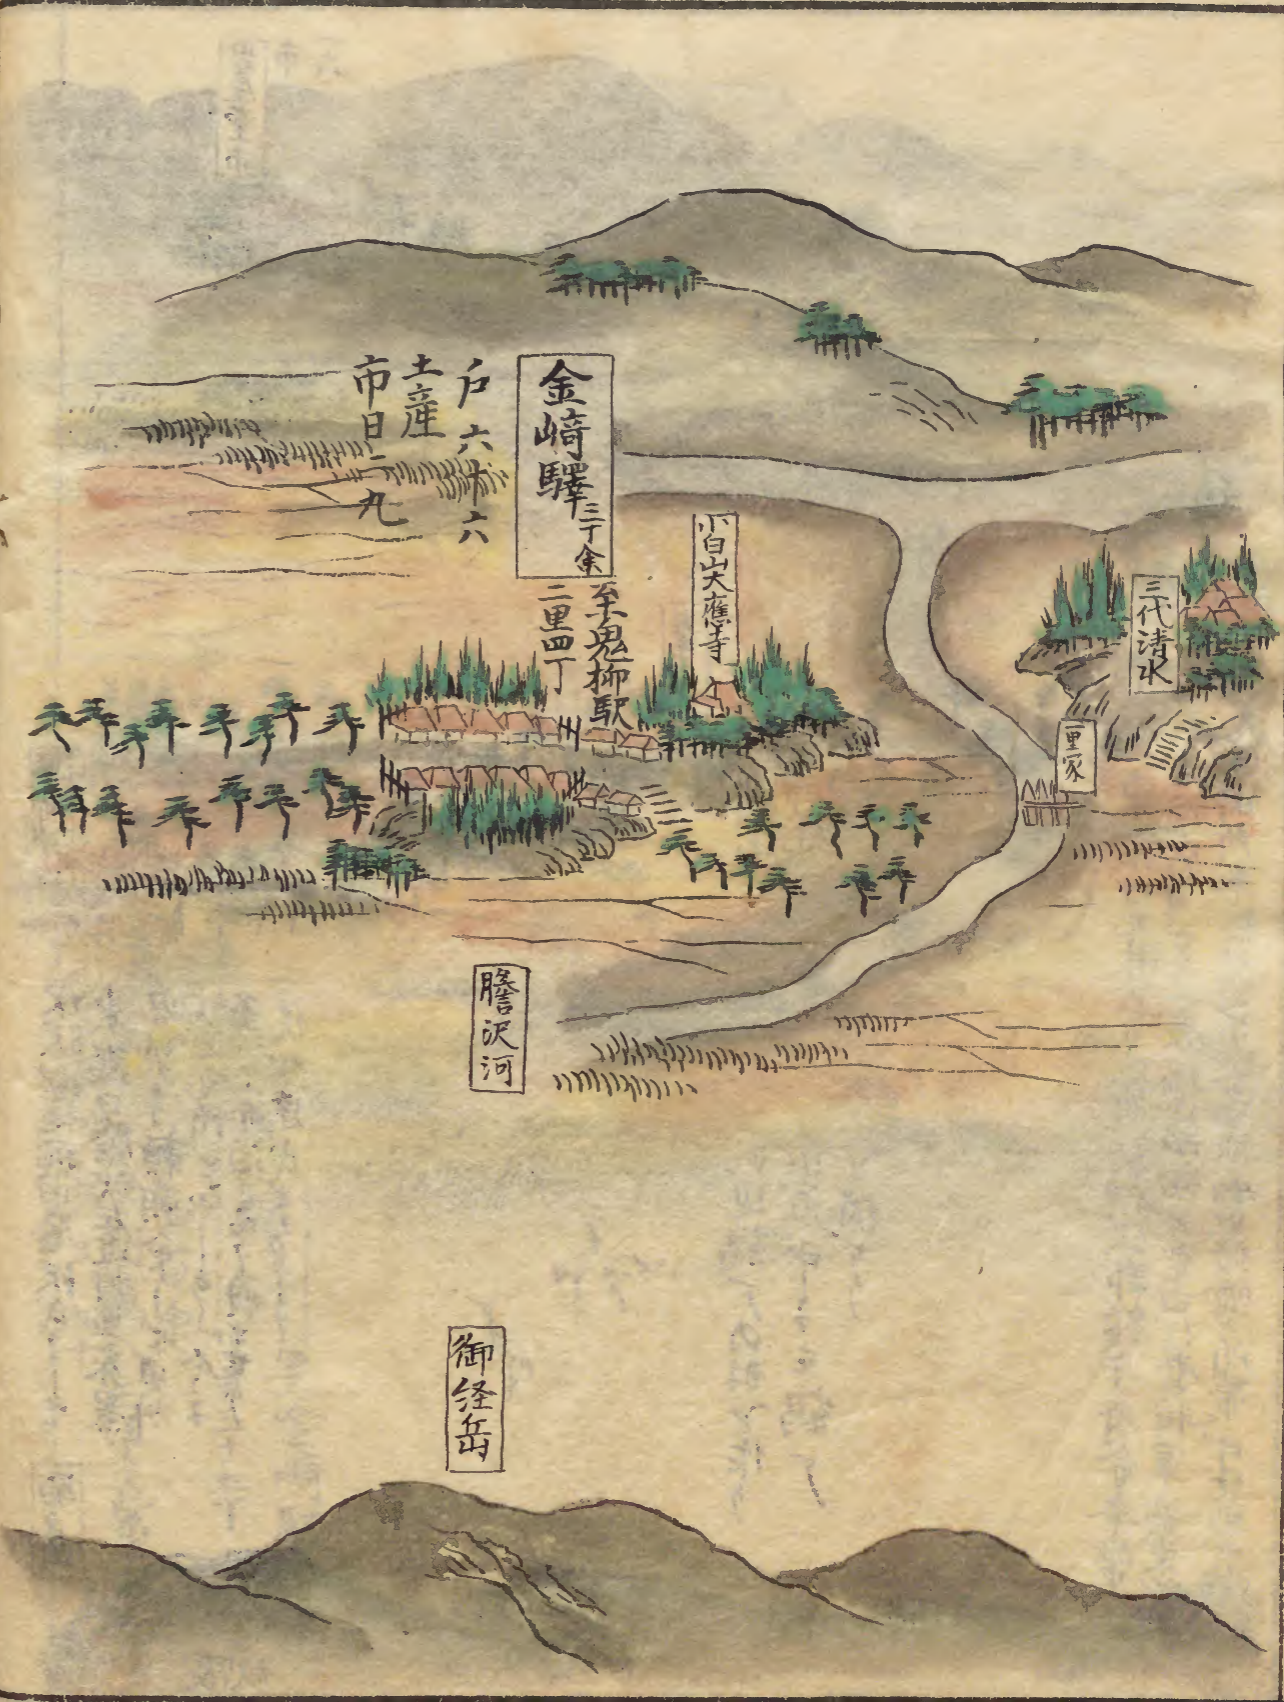 三代清水
里家
小白山大應寺
金﨑驛三丁余
至鬼柳駅
二里四丁
戶六十六
土產
市日二九
膽沢河
御経岳